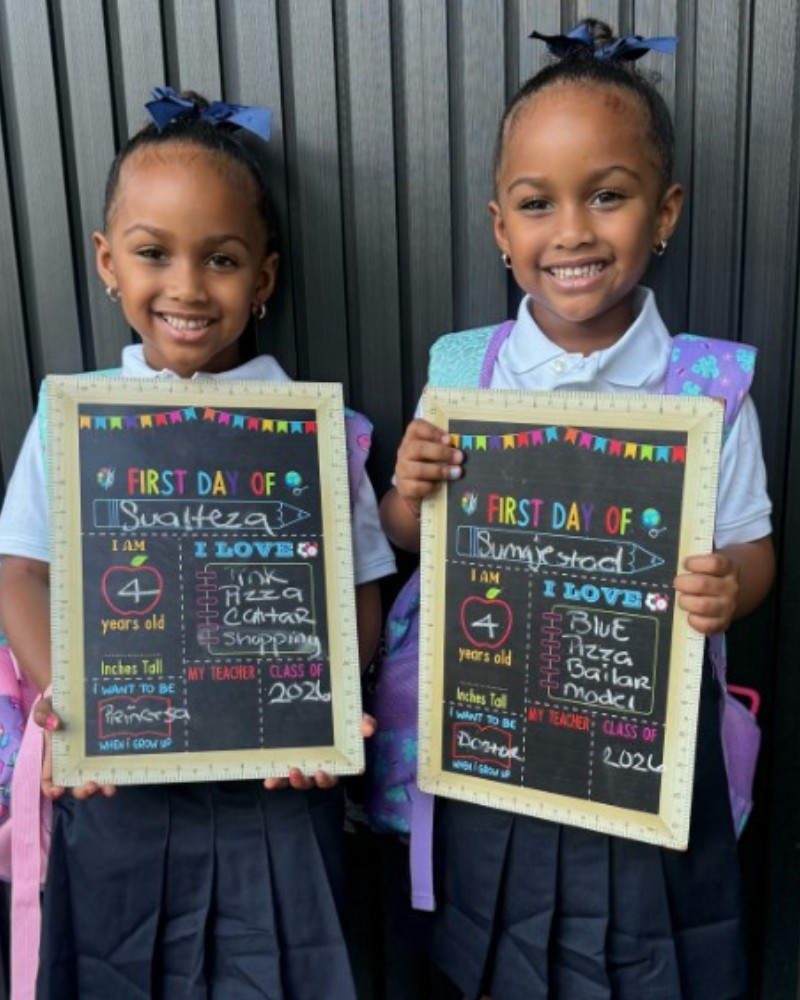 FIRST DAY OF
Sualteza
I AM
4
years old
Inches Tall
I LOVE
Pink
Pizza
Cantar
Shopping
I WANT TO BE
Princersa
WHEN I GROW UP
MY TEACHER
CLASS OF
2026
FIRST DAY OF
Sumajestad
I AM
4
years old
Inches Tall
I LOVE
BluE
Pizza
Bailar
Model
I WANT TO BE
Doctor
WHEN I GROW UP
MY TEACHER
CLASS OF
2026